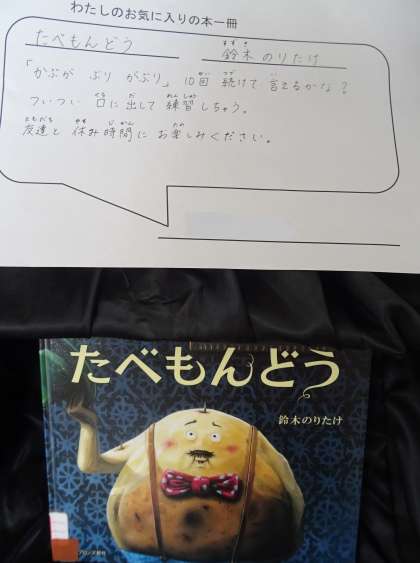 わたしのお気に入りの本一冊
たべもんどう 鈴木 のりたけ
「かぶが ぶり がぶり」 10回 続けて 言えるかな?
ついつい 口に 出して 練習 しちゃう。
友達と 休み時間に お楽しみください。
たべもんどう
鈴木のりたけ
ブロンズ新社